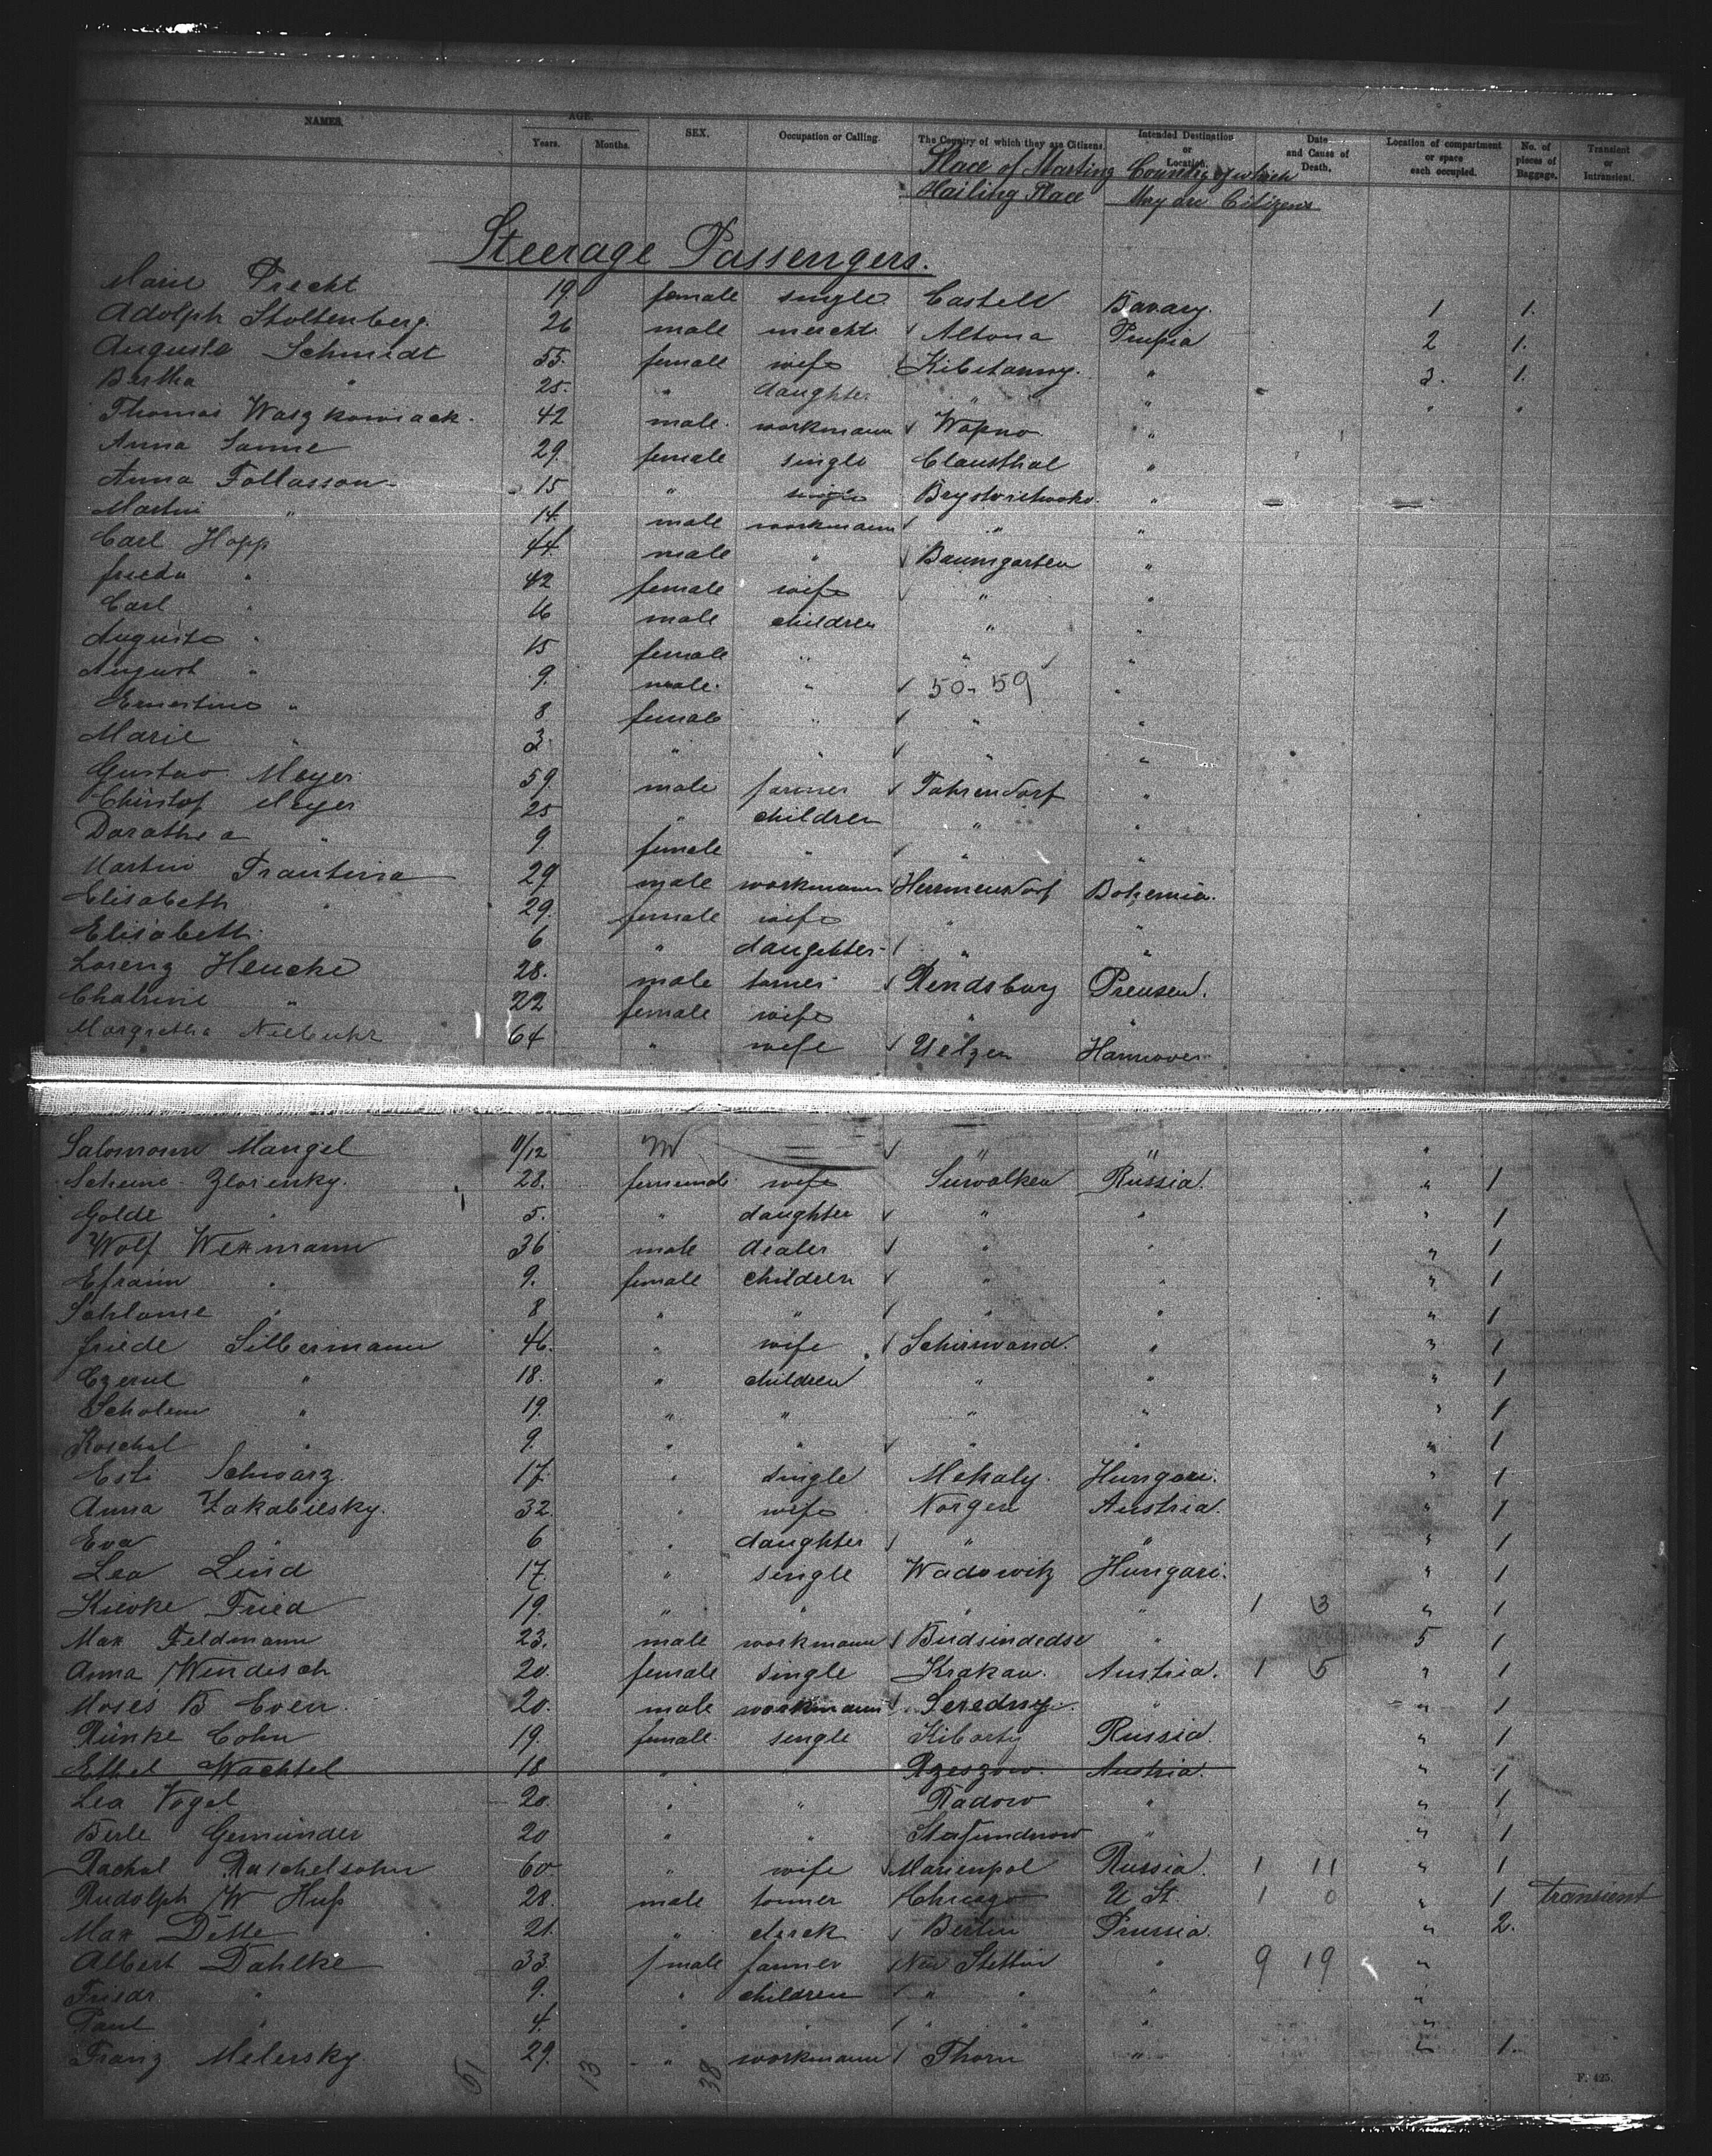 NAMES. AGE. SEX. Occupation or Calling. The Country of which they are Citizens. Intended Destination or Location. Date and Cause of Death. Location of compartment or space each occupied. No. of pieces of Baggage. Transient or Intransient.
Years. Months.
Place of Starting Country of which
Hailing Place they are Citizens
Steerage Passengers.
Marie Precht 19 female single Castell Bavary. 1 1.
Adolph Stoltenberg 26 male mercht ✓ Altona Prussia 2 1.
Auguste Schmidt 55. female wife Kibstanny. " 3. 1.
Bertha " 25. " daughter " "
Thomas Waszkowiack. 42 male. workmann ✓ Wapno "
Anna Sanne 29. female single Clausthal "
Anna Follasson 15 " single "
Martin " 14 male workmann ✓ " "
Carl Hopp 44. male " ✓ Baumgarten "
frieda " 42 female wife ✓ " "
Carl " 16 male children " "
Auguste " 15 female " " ✓ "
August " 9. male. " ✓ 50-59 "
Ernestine " 8 female " ✓ " "
Marie " 3. " " ✓ " "
Gustav Meyer 59. male farmer ✓ Fahrendorf "
Christof Meyer 25 " children " "
Dorothea " 9. female " ✓ " "
Martin Trautina 29 male workmann Hermendorf Bohemia.
Elisabeth " 29. female wife " "
Elisabeth 6 " daughter " "
Lorenz Hencke 28. male ✓ Rendsburg Preusen.
Chatrine " 22 female wife " "
Margretha Niebuhr 64 " wife ✓ Uelzen Hannover
Salomonn Mangel 11/12 M ✓ " " "
Scheine Zlorinky. 28. wife Suwalken Russia. " 1
Golde " 5. " daughter ✓ " " " 1
Wolf Wexmann 36 male dealer ✓ " " " 1
Efraim " 9. female children ✓ " " " 1
Schlome " 8 " " ✓ " " " 1
friede Silbermann 46. " wife ✓ Schirwand. " " 1
Czerul " 18. " children " " " 1
Scholem " 19. " " " " " 1
Koschel " 9. " " ✓ " " " 1
Esti Schwarz. 17. " single Mehaly. Hungari. " 1
Anna Zakabilsky. 32. " wife Norgen Austria. " 1
Eva " 6 " daughter ✓ " " " 1
Lea Lind 17. " single Wadowitz Hungari. " 1
Fried 19. " " " " 1 3 " 1
Max Feldmann 23. male workmann ✓ Budsindedse " 5 1
Anna Windisch 20. female single Krakau. Austria. 1 5 " 1
Moses B Coen. 20. male workmann ✓ Seredny. " " 1
Rünke Cohn 19. female. single Kibarty Russia. " 1
Ethel Wachtel 18 " " Rzeszow. Austria. " 1
Lea Vogel 20. " " Radow " " 1
Berle Gemünder 20 " " " " 1
Rachel Raschelsohn 60 " wife ✓ Marienpol Russia. 1 11 " 1
Rudolph W Huß 28. male Chicago U St. 1 0 " 1 transient
Max Dette 21. " clerck ✓ Berlin Prussia. " 2.
Albert Dahlke 33. male farmer ✓ New Stettin " 9 19 "
Friedr " 9. " children ✓ " " " "
Paul " 4. " " ✓ " " " "
Franz Melersky 29. " workmann ✓ Thorn " " 1.
51 13 38
F. 425.